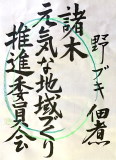 野ブキ 佃煮
諸木
元気な地域づくり
推進委員会